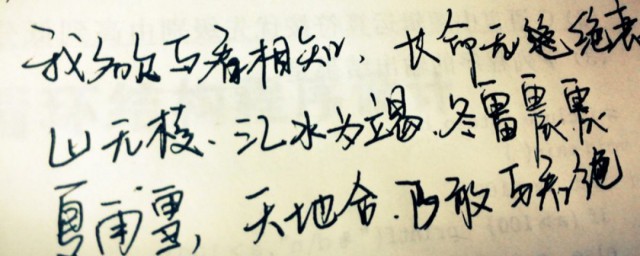 我欲与君相知、长命无绝绝衰
山无棱、江水为竭、冬雷震震
夏雨雪，天地合.乃敢与君绝